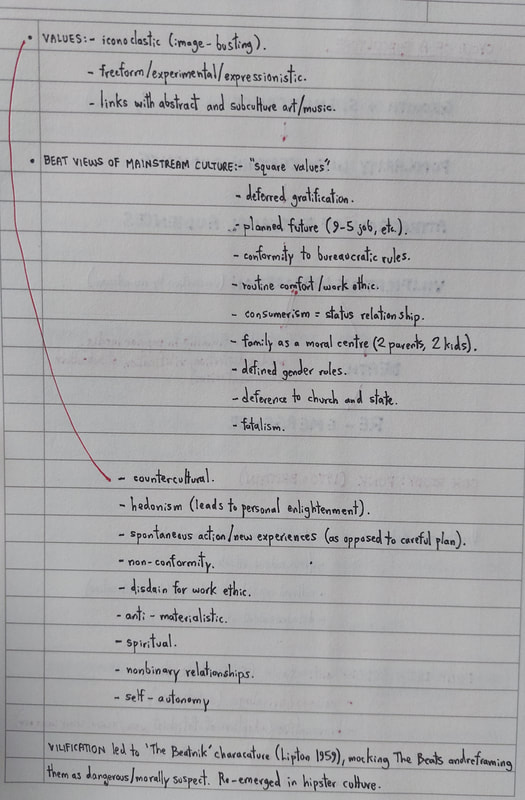 • VALUES:- iconoclastic (image-busting).
- freeform/experimental/expressionistic.
- links with abstract and subculture art/music.
↓
• BEAT VIEWS OF MAINSTREAM CULTURE:- "square values".
- deferred gratification.
- planned future (9-5 job, etc.).
- conformity to bureaucratic rules.
- routine comfort/work ethic.
- consumerism = status relationship.
- family as a moral centre (2 parents, 2 kids).
- defined gender roles.
- deference to church and state.
- fatalism.
- countercultural.
- hedonism (leads to personal enlightenment).
- spontaneous action/new experiences (as opposed to careful plan).
- non-conformity.
- disdain for work ethic.
- anti-materialistic.
- spiritual.
- nonbinary relationships.
- self-autonomy
VILIFICATION led to 'The Beatnik' characature (Lipton 1959), mocking The Beats and reframing
them as dangerous/morally suspect. Re-emerged in hipster culture.